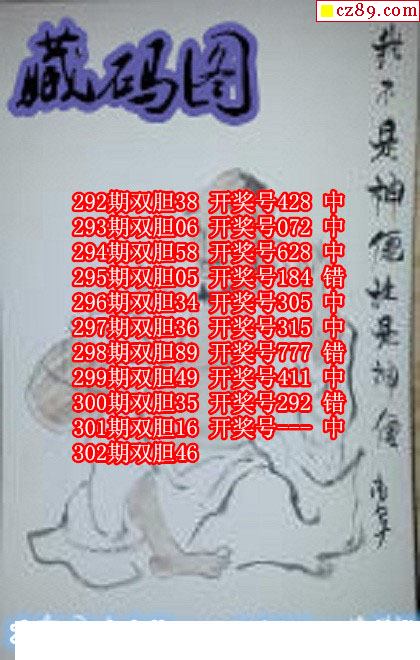 cz89.com
藏码图
我不是神但他是神仙
292期双胆38 开奖号428 中
293期双胆06 开奖号072 中
294期双胆58 开奖号628 中
295期双胆05 开奖号184 错
296期双胆34 开奖号305 中
297期双胆36 开奖号315 中
298期双胆89 开奖号777 错
299期双胆49 开奖号411 中
300期双胆35 开奖号292 错
301期双胆16 开奖号--- 中
302期双胆46